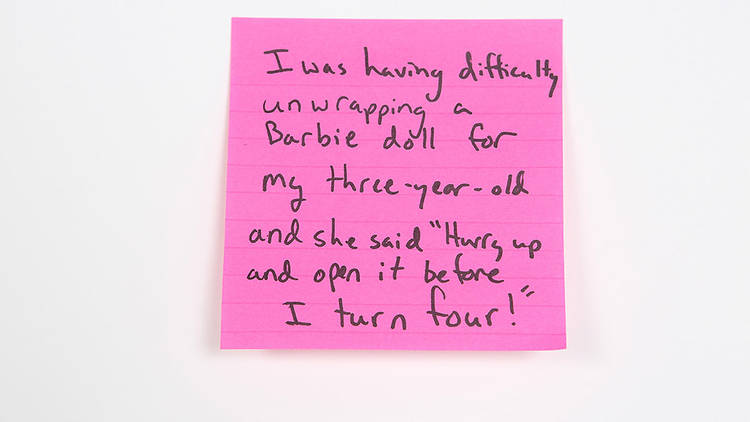 I was having difficulty
unwrapping a
Barbie doll for
my three-year-old
and she said "Hurry up
and open it before
I turn four!"